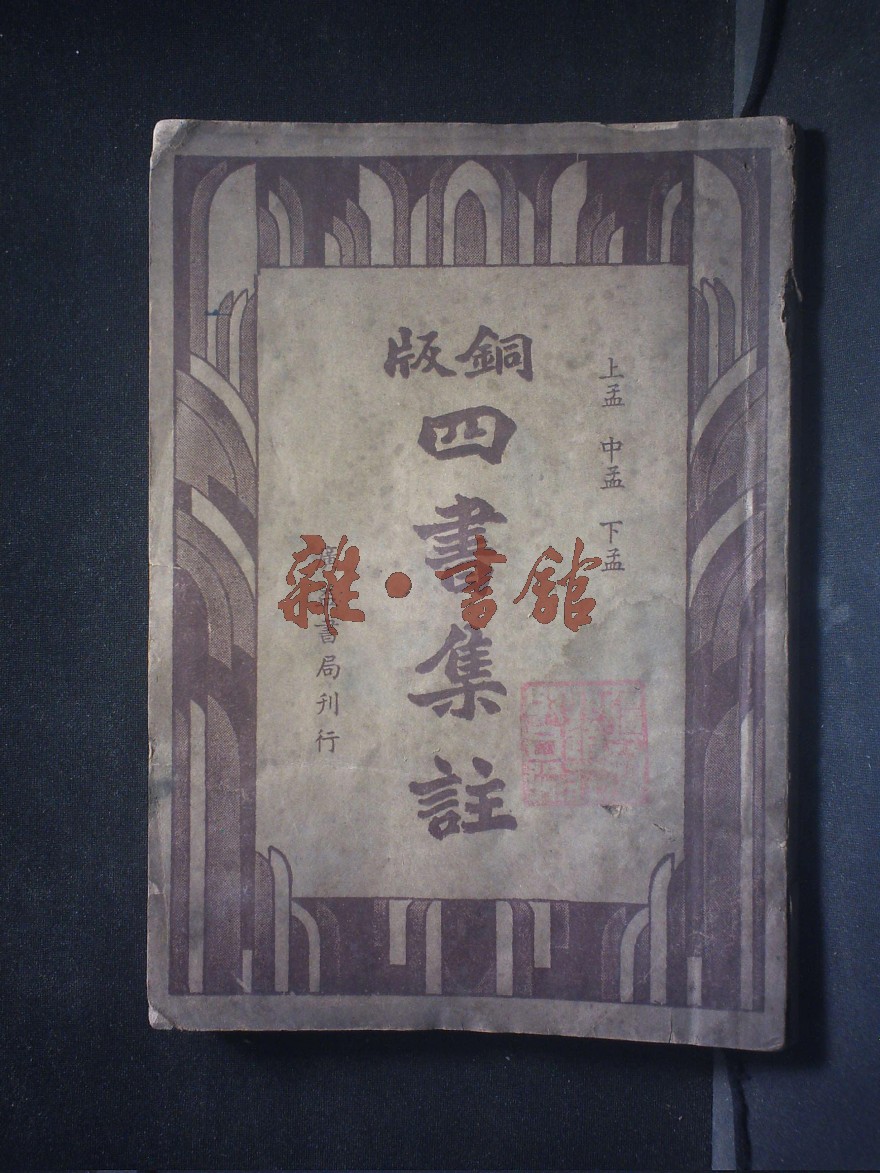 上孟 中孟 下孟
銅版
四書集註
書局刊行
雜·書館